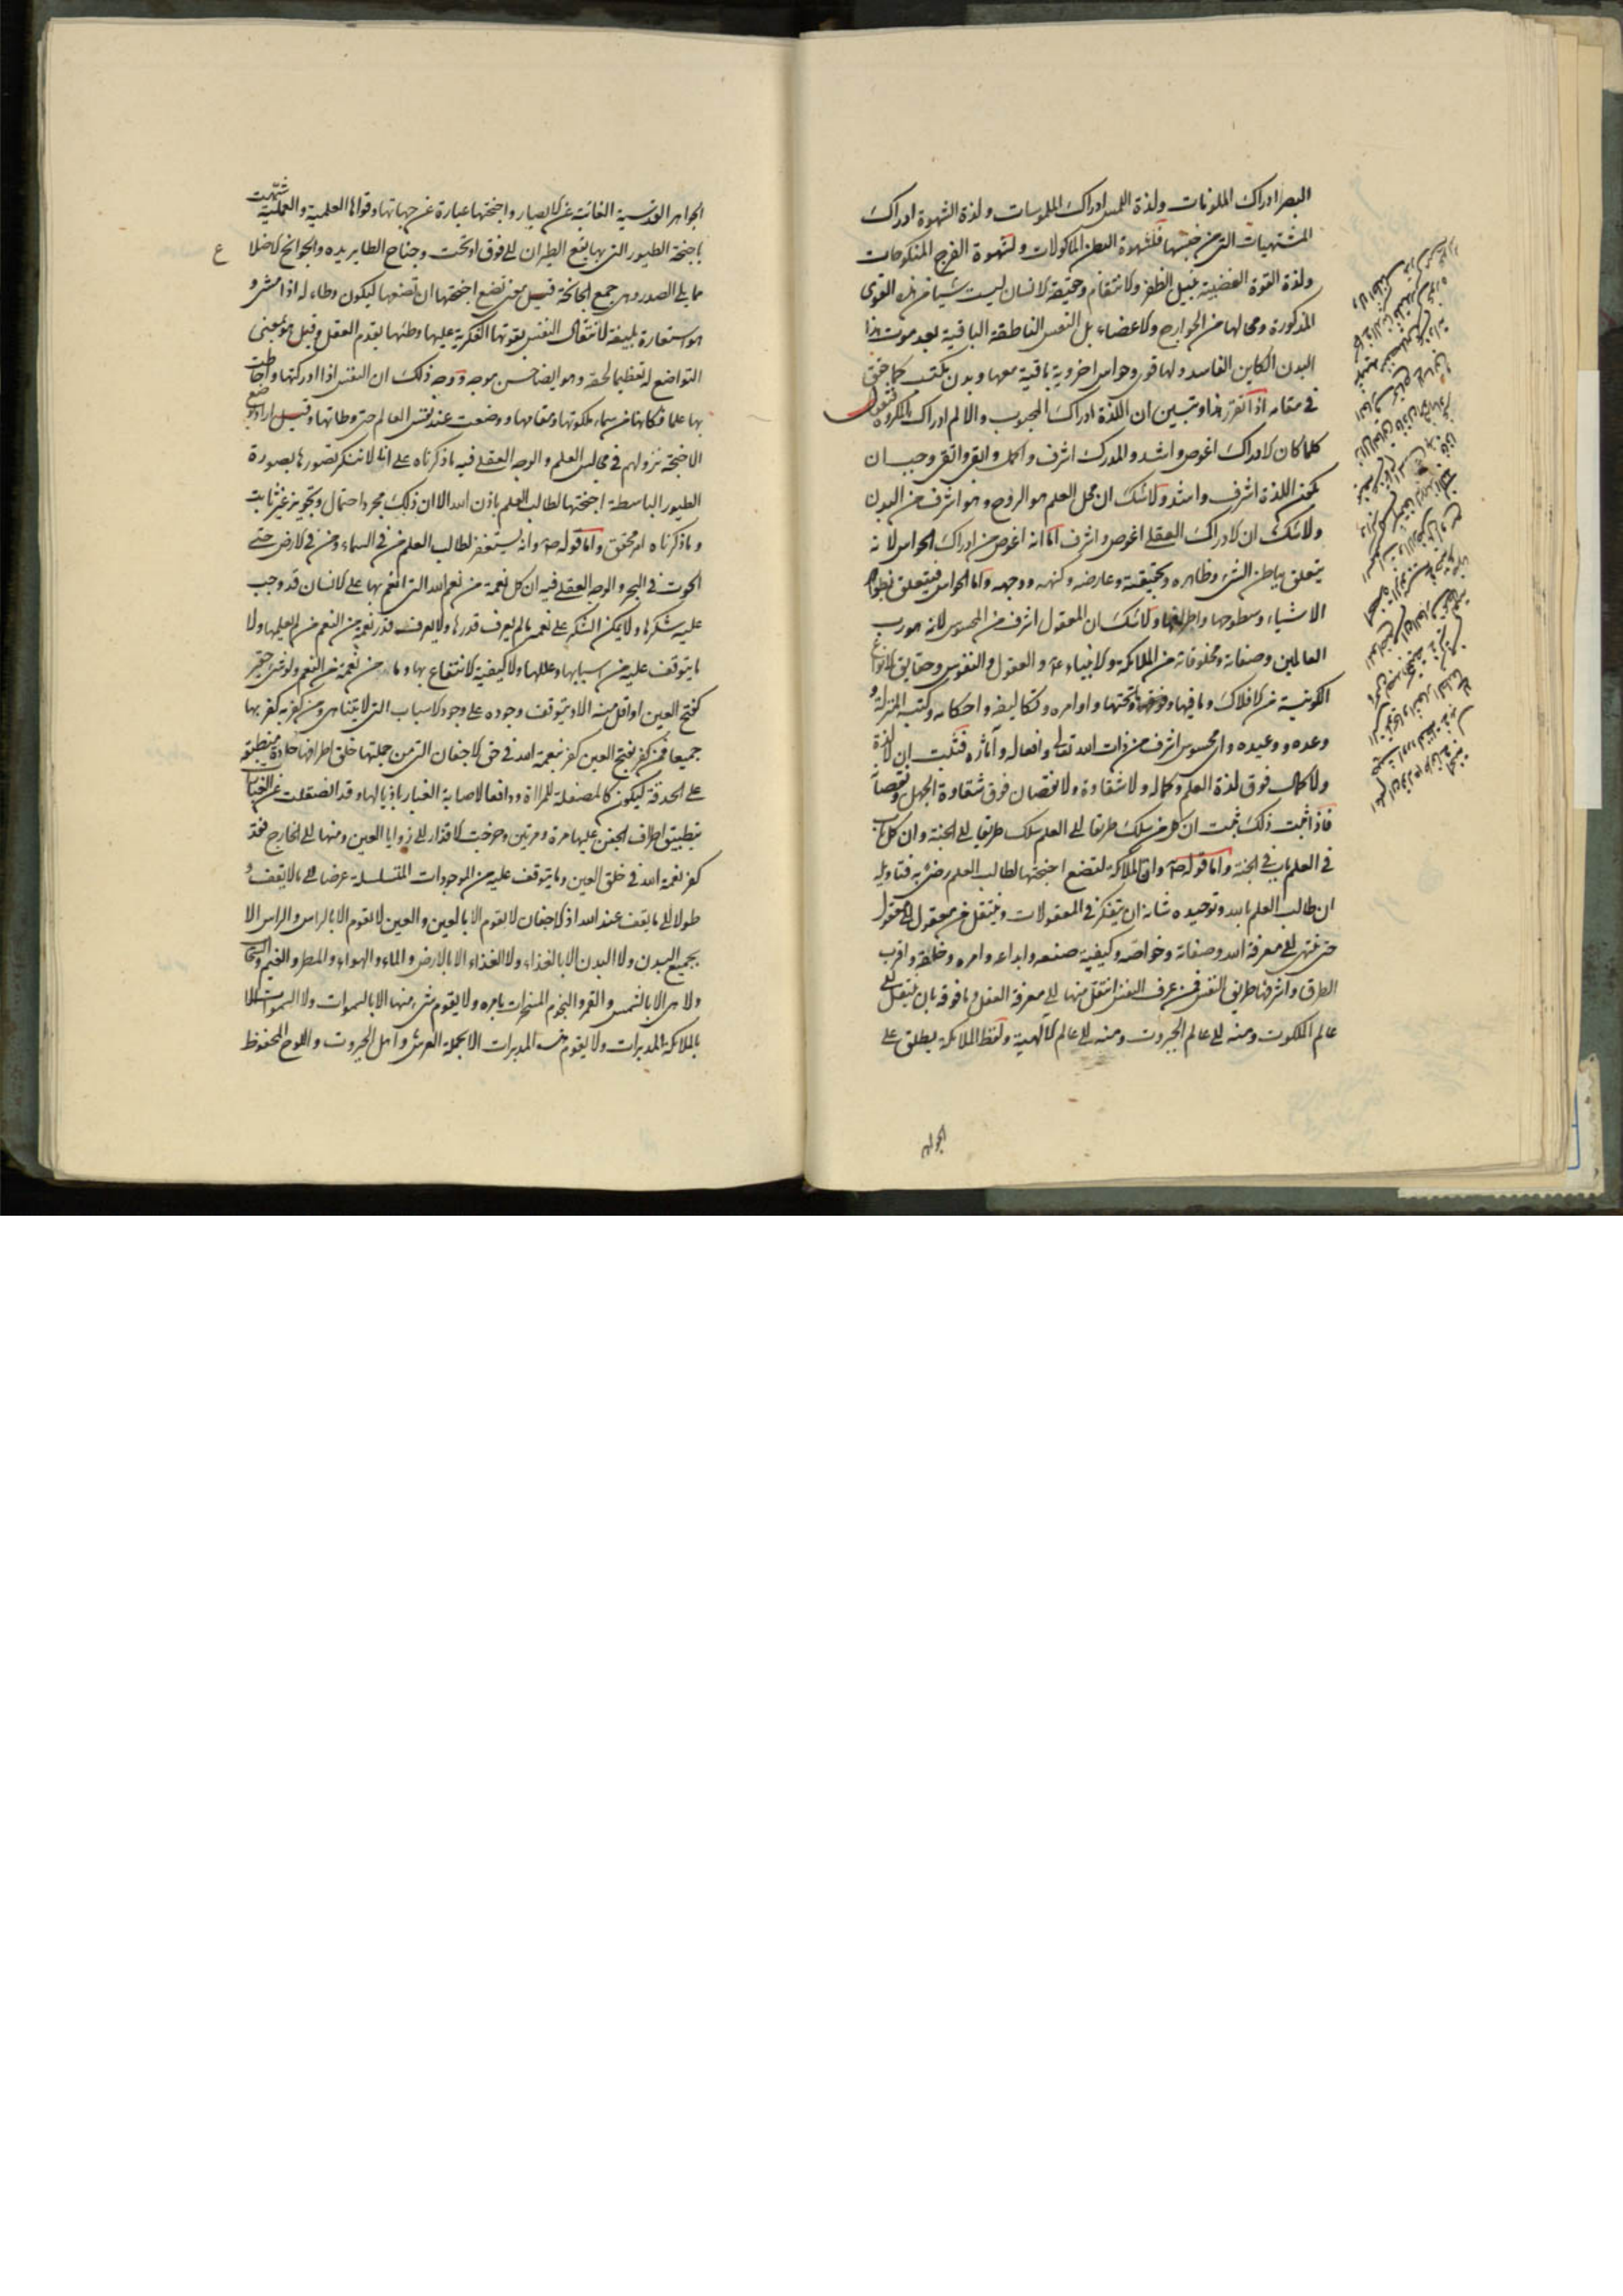 البصر ادراك الملونات ولذة اللمس ادراك الملموسات ولذة الشهوة ادراك
المشتهيات التى من جنسها فلشهوة البطن الماكولات ولشهوة الفرج المنكوحات
ولذة القوة الغضبية بنيل الظفر والانتقام وحقيقة الانسان ليست شيا من هذه القوى
المذكورة ومحالها من الجوارح والاعضاء بل النفس الناطقة الباقية بعد موت هذا
البدن الكاين الفاسد ولها قوى وحواس اخروية باقية معها وبدن مكتسب كما حقق
فى مقامه اذا تقرر هذا وتبين ان اللذة ادراك المحبوب والالم ادراك المكروه فنقول
كلما كان الادراك اغوص واشد والمدرك اشرف واكمل وابقى وانقى وجب ان
تكون اللذة اشرف واشد ولاشك ان محل العلم هو الروح وهو اشرف من البدن
ولاشك ان الادراك العقلى اغوص واشرف اما انه اغوص من ادراك الحواس لانه
يتعلق بباطن الشىء وظاهره وحقيقته وعارضه وكنهه ووجهه واما الحواس فيتعلق بظواهر
الاشياء وسطوحها واطرافها ولاشك ان المعقول اشرف من المحسوس لانه هو رب
العالمين وصفاته ومخلوقاته من الملائكة والانبياء ع والعقول والنفوس وحقايق الانواع
الكونية من الافلاك وما فيها وفوقها وتحتها واوامره وتكاليفه واحكامه وكتبه المنزلة و
وعده ووعيده واى محسوس اشرف من ذات الله تعالى وافعاله وآثاره فثبت ان لا لذة
ولا كمال فوق لذة العلم وكماله ولا شقاوة ولا نقصان فوق شقاوة الجهل ونقصانه
فاذا ثبت ذلك ثبت ان كل من سلك طريقا الى العلم سلك طريقا الى الجنة وان كل باب
فى العلم باب فى الجنة واما قوله ص وان الملائكة لتضع اجنحتها لطالب العلم رضى به فتاويله
ان طالب العلم بالله وتوحيده شانه ان يتفكر فى المعقولات وينتقل من معقول الى معقول
حتى ينتهى الى معرفة الله وصفاته وخواصه وكيفية صنعه وابداعه وامره وخلقه واقرب
الطرق واشرفها طريق النفس فمن عرف النفس انتقل منها الى معرفة العقل وما فوقه بان ينتقل الى
عالم الملكوت ومنه الى عالم الجبروت ومنه الى عالم الالهية ولفظ الملائكة يطلق على
الجواهر
الجواهر القدسية الغائبة عن الابصار واجنحتها عبارة عن جهاتها وقواها العلمية والعملية شبهت
باجنحة الطيور التى بها يقع الطيران الى فوق او تحت وجناح الطاير يده والجوانح الاضلاع
مما يلى الصدر وهى جمع الجانحة قيل معنى تضع اجنحتها ان تضعها ليكون وطاء له اذا مشى و
هو استعارة بليغة لانتقال النفس بقوتها الفكرية عليها وطئها بقدم العقل وقيل هو بمعنى
التواضع له تعظيما لحقه وهو ايضا حسن موجه ووجه ذلك ان النفس اذا ادركتها واحاطت
بها علما فكانها من سماء ملكوتها ومقامها ووضعت عند نفس العالم حتى وطاتها وقيل اراد بوضع
الاجنحة نزولهم فى مجالس العلم والوجه العقلى فيه ما ذكرناه على انا لا ننكر تصورها بصورة
الطيور الباسطة اجنحتها لطالب العلم باذن الله الا ان ذلك مجرد احتمال وتجويز غير ثابت
وما ذكرناه امر محقق واما قوله ص وانه يستغفر لطالب العلم من فى السماء ومن فى الارض حتى
الحوت فى البحر والوجه العقلى فيه ان كل نعمة من نعم الله التى انعم بها على الانسان قد وجب
عليه شكرها ولا يمكن الشكر على نعمة ما لم يعرف قدرها ولا يعرف قدر نعمة من النعم من لم يعلمها ولا
ما يتوقف عليه من اسبابها وعللها ولا كيفية الانتفاع بها وما من نعمة من النعم ولو شىء حقير
كفتح العين او اقل منه الا ويتوقف وجوده على وجود الاسباب التى لا يتناهى ومن كفر به كفر بها
جميعا فمن كفر بفتح العين كفر بنعمة الله فى حق الاجفان التى من جملتها خلق اطرافها حادة منطبقة
على الحدقة ليكون كالمصقلة للمراة ودافعا لاصابة الغبار باذيالها وقد انصقلت عن الغبار
بتطبيق اطراف الجفن عليها مرة ومرتين وخرجت الاقذار الى زوايا العين ومنها الى الخارج فقد
كفر نعمة الله فى خلق العين وما يتوقف عليه من الموجودات المتسلسلة عرضا الى ما لا يقف و
طولا الى ما يقف عند الله اذ الاجفان لا يقوم الا بالعين والعين لا يقوم الا بالراس والراس الا
بجميع البدن ولا البدن الا بالغذاء ولا الغذاء الا بالارض والماء والهواء والمطر والغيم والسحاب
ولا هى الا بالشمس والقمر والنجوم المسخرات بامره ولا يقوم شىء منها الا بالسموات ولا السموات الا
بالملائكة المدبرات ولا يقوم المدبرات الا بجملة العرش واهل الجبروت واللوح المحفوظ